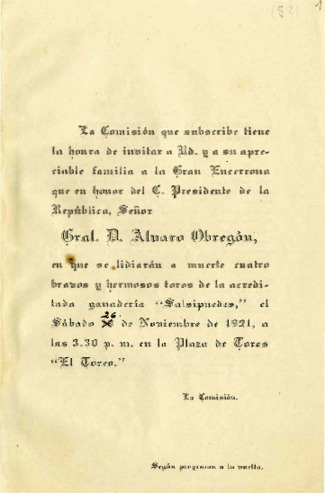 1821
La Comisión que subscribe tiene
la honra de invitar a Ud. y a su apre-
ciable familia a la Gran Encerrona
que en honor del C. Presidente de la
República, Señor
Gral. D. Alvaro Obregón,
en que se lidiarán a muerte cuatro
bravos y hermosos toros de la acredi-
tada ganadería "Salsipuedes," el
26
Sábado de Noviembre de 1921, a
las 3.30 p. m. en la Plaza de Toros
"El Toreo."
La Comisión.
Según programa a la vuelta.